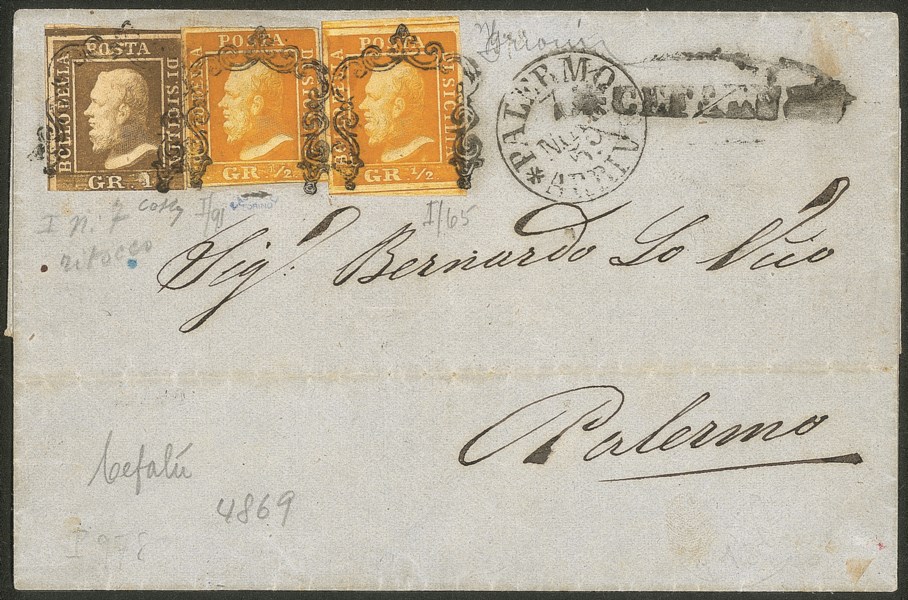 BOLLO DELLA POSTA DI SICILIA
GR. 1
BOLLO DELLA POSTA DI SICILIA
GR. 1/2
BOLLO DELLA POSTA DI SICILIA
GR. 1/2
* PALERMO *
ARRIVO
CEFALU
I n. 7
ritocco
I/91
I/65
Sig.r Bernardo Lo Vico
Palermo
Cefalù
4869